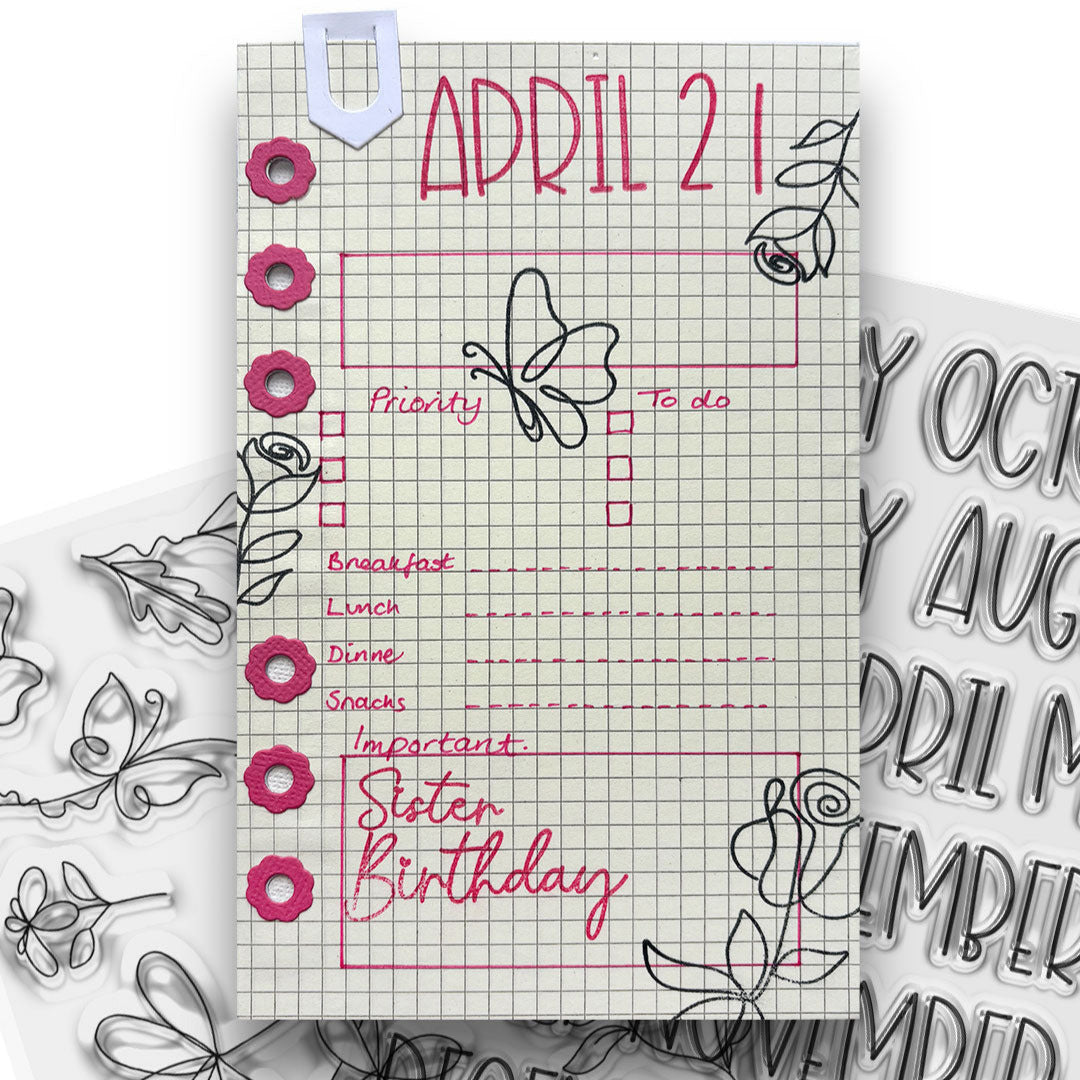 APRIL 21
Priority
To do
Breakfast
Lunch
Dinne
Snacks
Important.
Sister
Birthday
Y OCT
Y AUG
PRIL M
EMBER
VEMBER